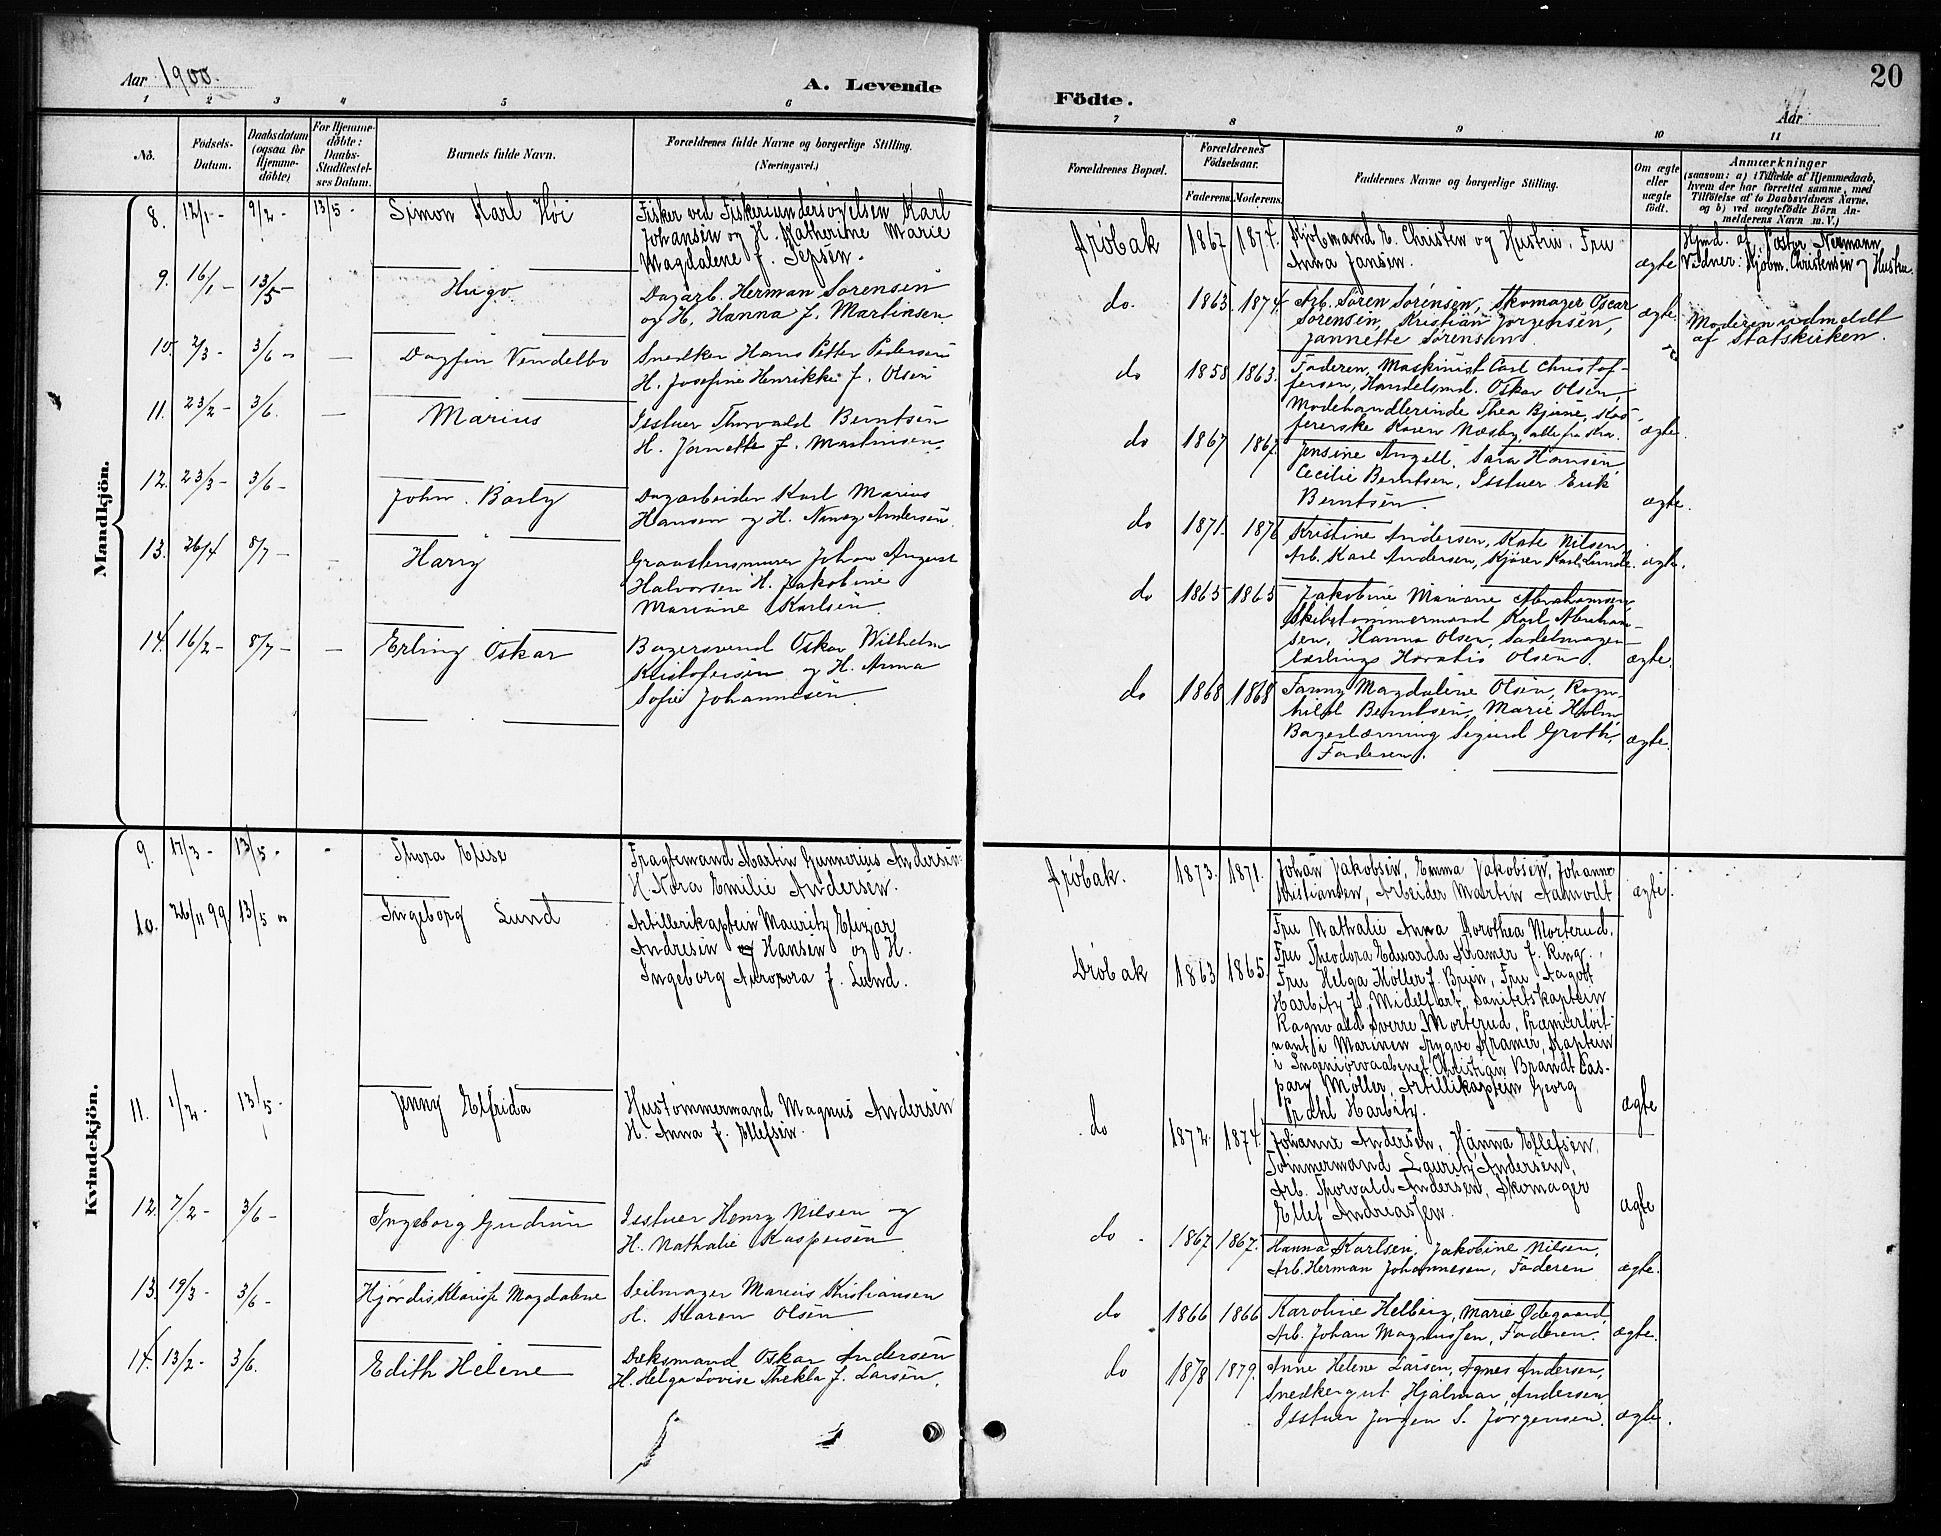 Aar 1900.
A. Levende
1 2 3 4 5 6
No.
Fødsels-Datum.
Daabsdatum (ogsaa for Hjemme-døbte)
For Hjemme-døbte: Daabs-Stadfæstel-ses Datum.
Barnets fulde Navn.
Forældrenes fulde Navne og borgerlige Stilling.
(Næringsvei.)
Mandkjön.
8. 12/1 - 9/2 - 13/5 - Simon Karl Høi
Fisker ved Fiskeriundersøgelsen Karl
Johansen og H. Katherine Marie
Magdalene f. Jepsen.
9. 16/1 - 13/5 - Hugo
Dagarb. Herman Sørensen
og H. Hanna f. Martinsen.
10. 2/3 - 3/6 - Dagfin Vendelbo
Snedker Hans Petter Pedersen
H. Josefine Henrikke f. Olsen
11. 23/2 - 3/6. - Marius
Isstuer Thorvald Berntsen
H. Jannette f. Martinsen.
12. 23/3 - 3/6 - John Barly
Dagarbeider Karl Marius
Hansen og H. Nancy Andersen.
13. 26/4 8/7 - Harry
Graastensmurer Johan August
Halvorsen H. Jakobine
Mariane Karlsen.
14. 16/2 - 8/7 - Erling Oskar
Bagersvend Oskar Wilhelm
Kristofersen og H. Anna
Sofie Johannesen
Kvindekjön.
9. 17/3 - 13/5 - Thora Elise
Fragtemand Martin Gunnerius Andersen
H. Nora Emilie Andersen.
10. 26/11 99 13/5 Ingeborg Lund
Artillerikaptein Mauritz Elizar
Andresen Hansen og H.
Ingeborg Aurora f. Lund.
11. 1/2 - 13/5 - Jenny Elfrida
Hustømmermand Magnus Andersen
H. Anna f. Ellefsen.
12. 7/2 - 3/6 - Ingeborg Gudrun
Isstuer Henry Nilsen og
H. Nathalie Kaspersen
13. 19/3 - 3/6 - Hjørdis Klarisse Magdalene
Seilmager Marius Kristiansen
H. Maren Olsen
14. 13/2 - 3/6. Edith Helene
Dæksmand Oskar Andersen
H. Helga Lovise Thekla f. Larsen.
Födte.
20
Aar
7 8 9 10 11
Forældrenes Bopæl.
Forældrenes Fødselsaar.
Faderens. Moderens.
Faddernes Navne og borgerlige Stilling.
Om ægte eller uægte født.
Anmærkninger
(saasom: a) i Tilfælde af Hjemmedaab,
hvem der har forrettet samme, med
Tilføielse af to Daabsvidners Navne,
og b) ved uægtefødte Børn An-
melderens Navn m. V.)
Drøbak 1867 1874. Kjøbmand E. Christen og Hustru, Fru
Anna Jansen. ægte
Hjmd. af Pastor Neumann
Vidner: Kjøbm. Christensen og Hustru.
do. 1863 1874. Arb. Søren Sørensen, Skomager Oscar
Sørensen, Kristian Jørgensen,
Jannette Sørensen. ægte
Moderen udmeldt
af Statskirken.
do 1858 1863. Faderen, Maskinist Carl Christof-
fersen, Handelsmd. Oskar Olsen,
Modehandlerinde Thea Bjerne,
Karen Næsby, alle fra Kra. ægte.
do 1867 1867. Jensine Angell, Sara Hansen
Cecilie Berntsen, Isstuer Erik
Berntsen. ægte.
do 1871. 1876 Kristine Andersen, Kate Nilsen,
Arb. Karl Andersen, Kjører Karl Lunde. ægte.
do 1865 1865 Jakobine Mariane Abrahamsen,
Skibstømmermand Karl Abraham-
sen, Hanna Olsen, Sadelmager-
lærling Horatio Olsen. ægte.
do 1868 1868 Fanny Magdalene Olsen, Ragn-
hild Berntsen, Marie Holm,
Bagerlærning Sigurd Groth,
Faderen. ægte.
Drøbak. 1873. 1871. Johan Jakobsen, Emma Jakobsen, Johanne
Kristiansen, Arbeider Martin Aamodt ægte.
Drøbak 1863 1865. Fru Nathalie Anna Dorothea Morterud,
Fru Theodora Edvarda Kramer f. Ring,
Fru Helga Møller f. Bruun, Fru Aagot
Harbitz f. Midelfart, Sanitetskaptein
Ragnvald Sverre Morterud, Premierløit-
nant i Marinen Trygve Kramer, Kaptein
i Ingeniørvaabenet Christian Brandt Cas-
pary Møller, Artillikaptein Georg
Prahl Harbitz. ægte
do 1872. 1874. Johanne Andersen, Hanna Ellefsen,
Tømmermand Lauritz Andersen,
Arb. Thorvald Andersen, Skomager
Ellef Andreassen. ægte
do 1867 1867. Hanna Karlsen, Jakobine Nilsen,
Arb. Herman Johannesen, Faderen ægte.
do 1866 1866 Karoline Helberg, Marie Ødegaard,
Arb. Johan Magnussen, Faderen. ægte.
do 1878 1879. Anne Helene Larsen, Agnes Andersen,
Snedkergut Hjalmar Andersen
Isstuer Jørgen S. Jørgensen. ægte.